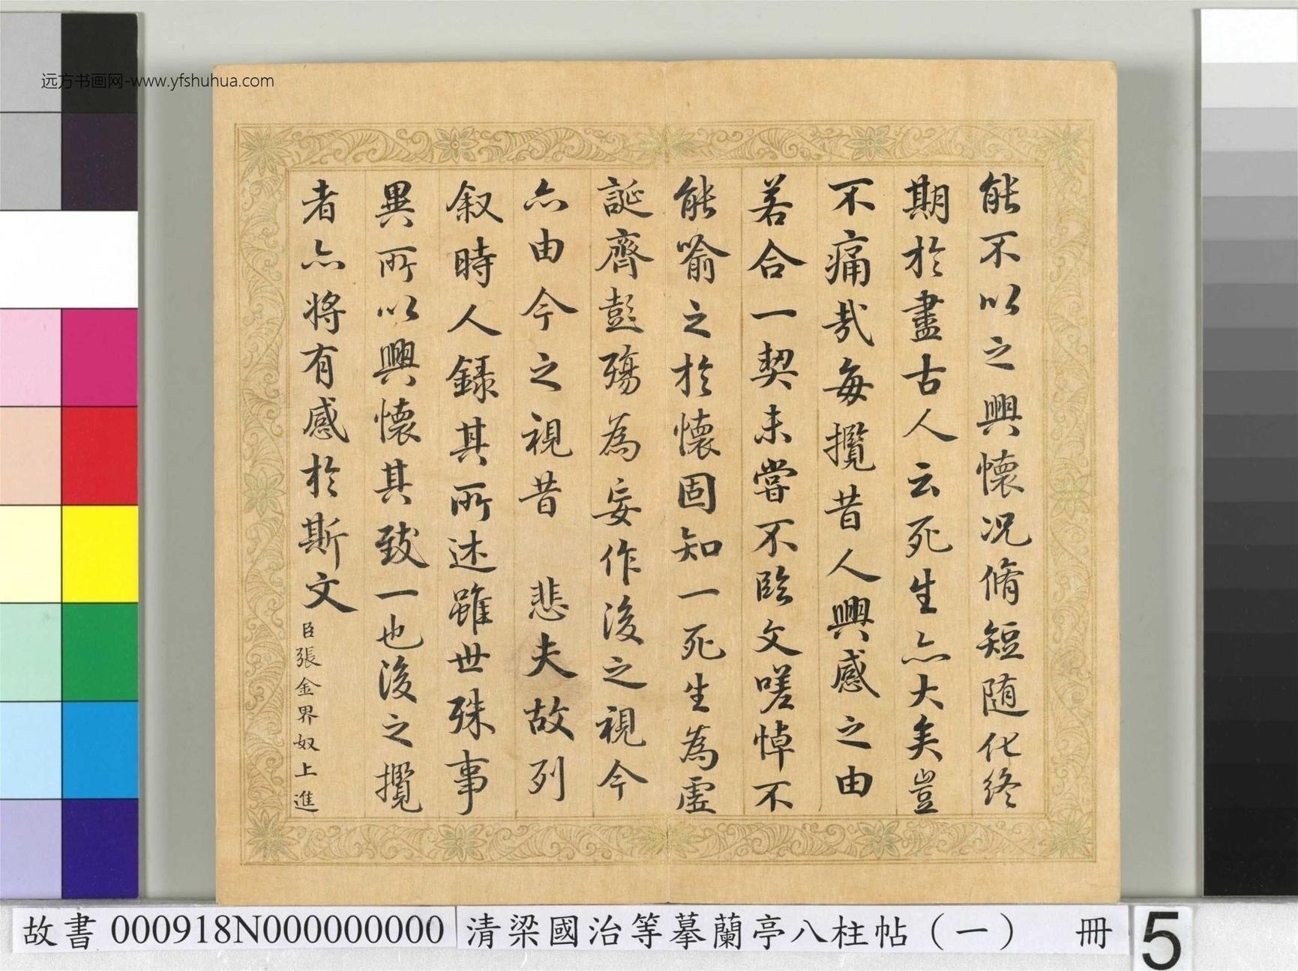 远方书画网-www.yfshuhua.com
能不以之興懷况脩短随化終
期於盡古人云死生亦大矣豈
不痛哉每攬昔人興感之由
若合一契未嘗不臨文嗟悼不
能喻之於懷固知一死生為虛
誕齊彭殤為妄作後之視今
亦由今之視昔　悲夫故列
叙時人錄其所述雖世殊事
異所以興懷其致一也後之攬
者亦将有感於斯文
臣張金界奴上進
故書 000918N000000000 清梁國治等摹蘭亭八柱帖（一） 冊 5